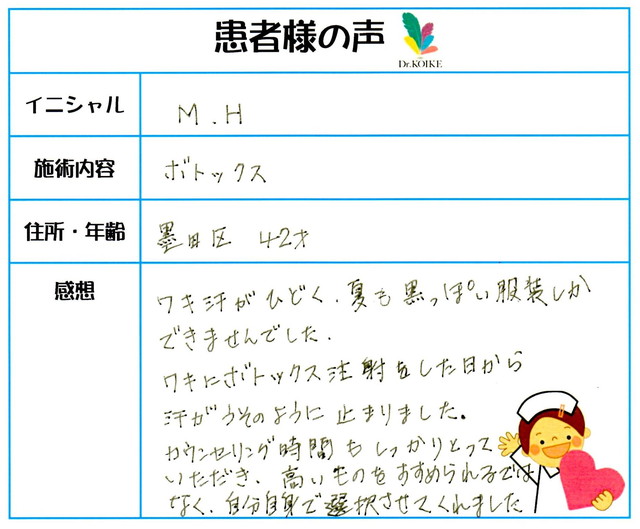 患者様の声
Dr.KOIKE
イニシャル
M.H
施術内容
ボトックス
住所・年齢
墨田区 42才
感想
ワキ汗がひどく、夏も黒っぽい服装しか
できませんでした.
ワキにボトックス注射をした日から
汗がうそのように止まりました。
カウンセリング時間もしっかりとって
いただき、高いものをすすめられるでは
なく、自分自身で選択させてくれました